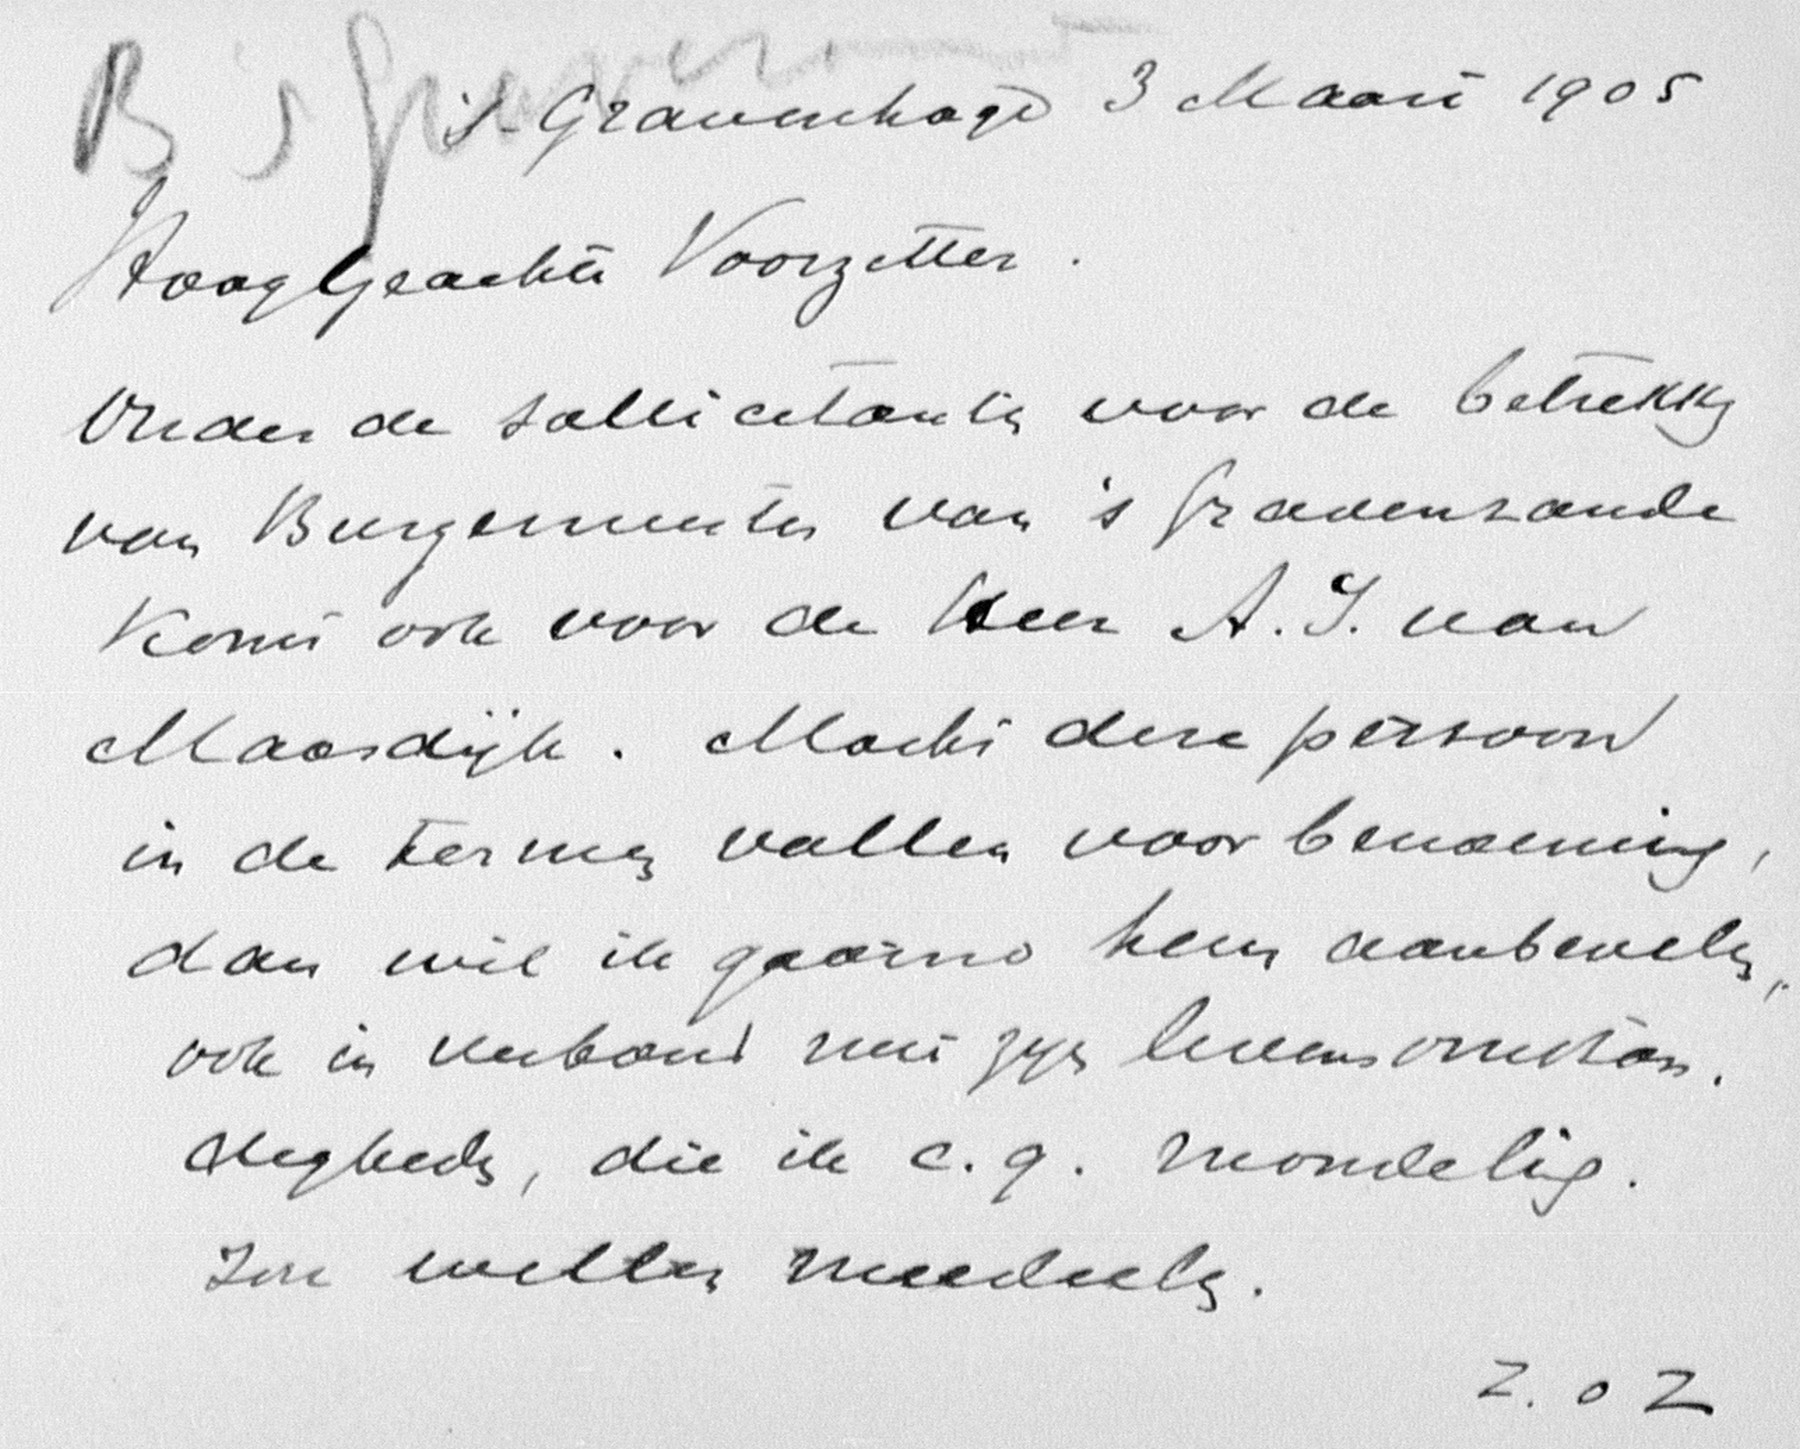 B 's Graven
's-Gravenhage 3 Maart 1905
HoogGeachte Voorzitter.
Onder de sollicitanten voor de betrekkg
van Burgemeester van 's Gravenzande
komt ook voor de Heer A. J. van
Maasdijk. Mocht deze persoon
in de termen vallen voor benoeming,
dan wil ik gaarne hem aanbevelen,
ook in verband met zijn levensomstan.
digheden, die ik c.q. mondeling.
zou willen meedeelen.
Z. o Z